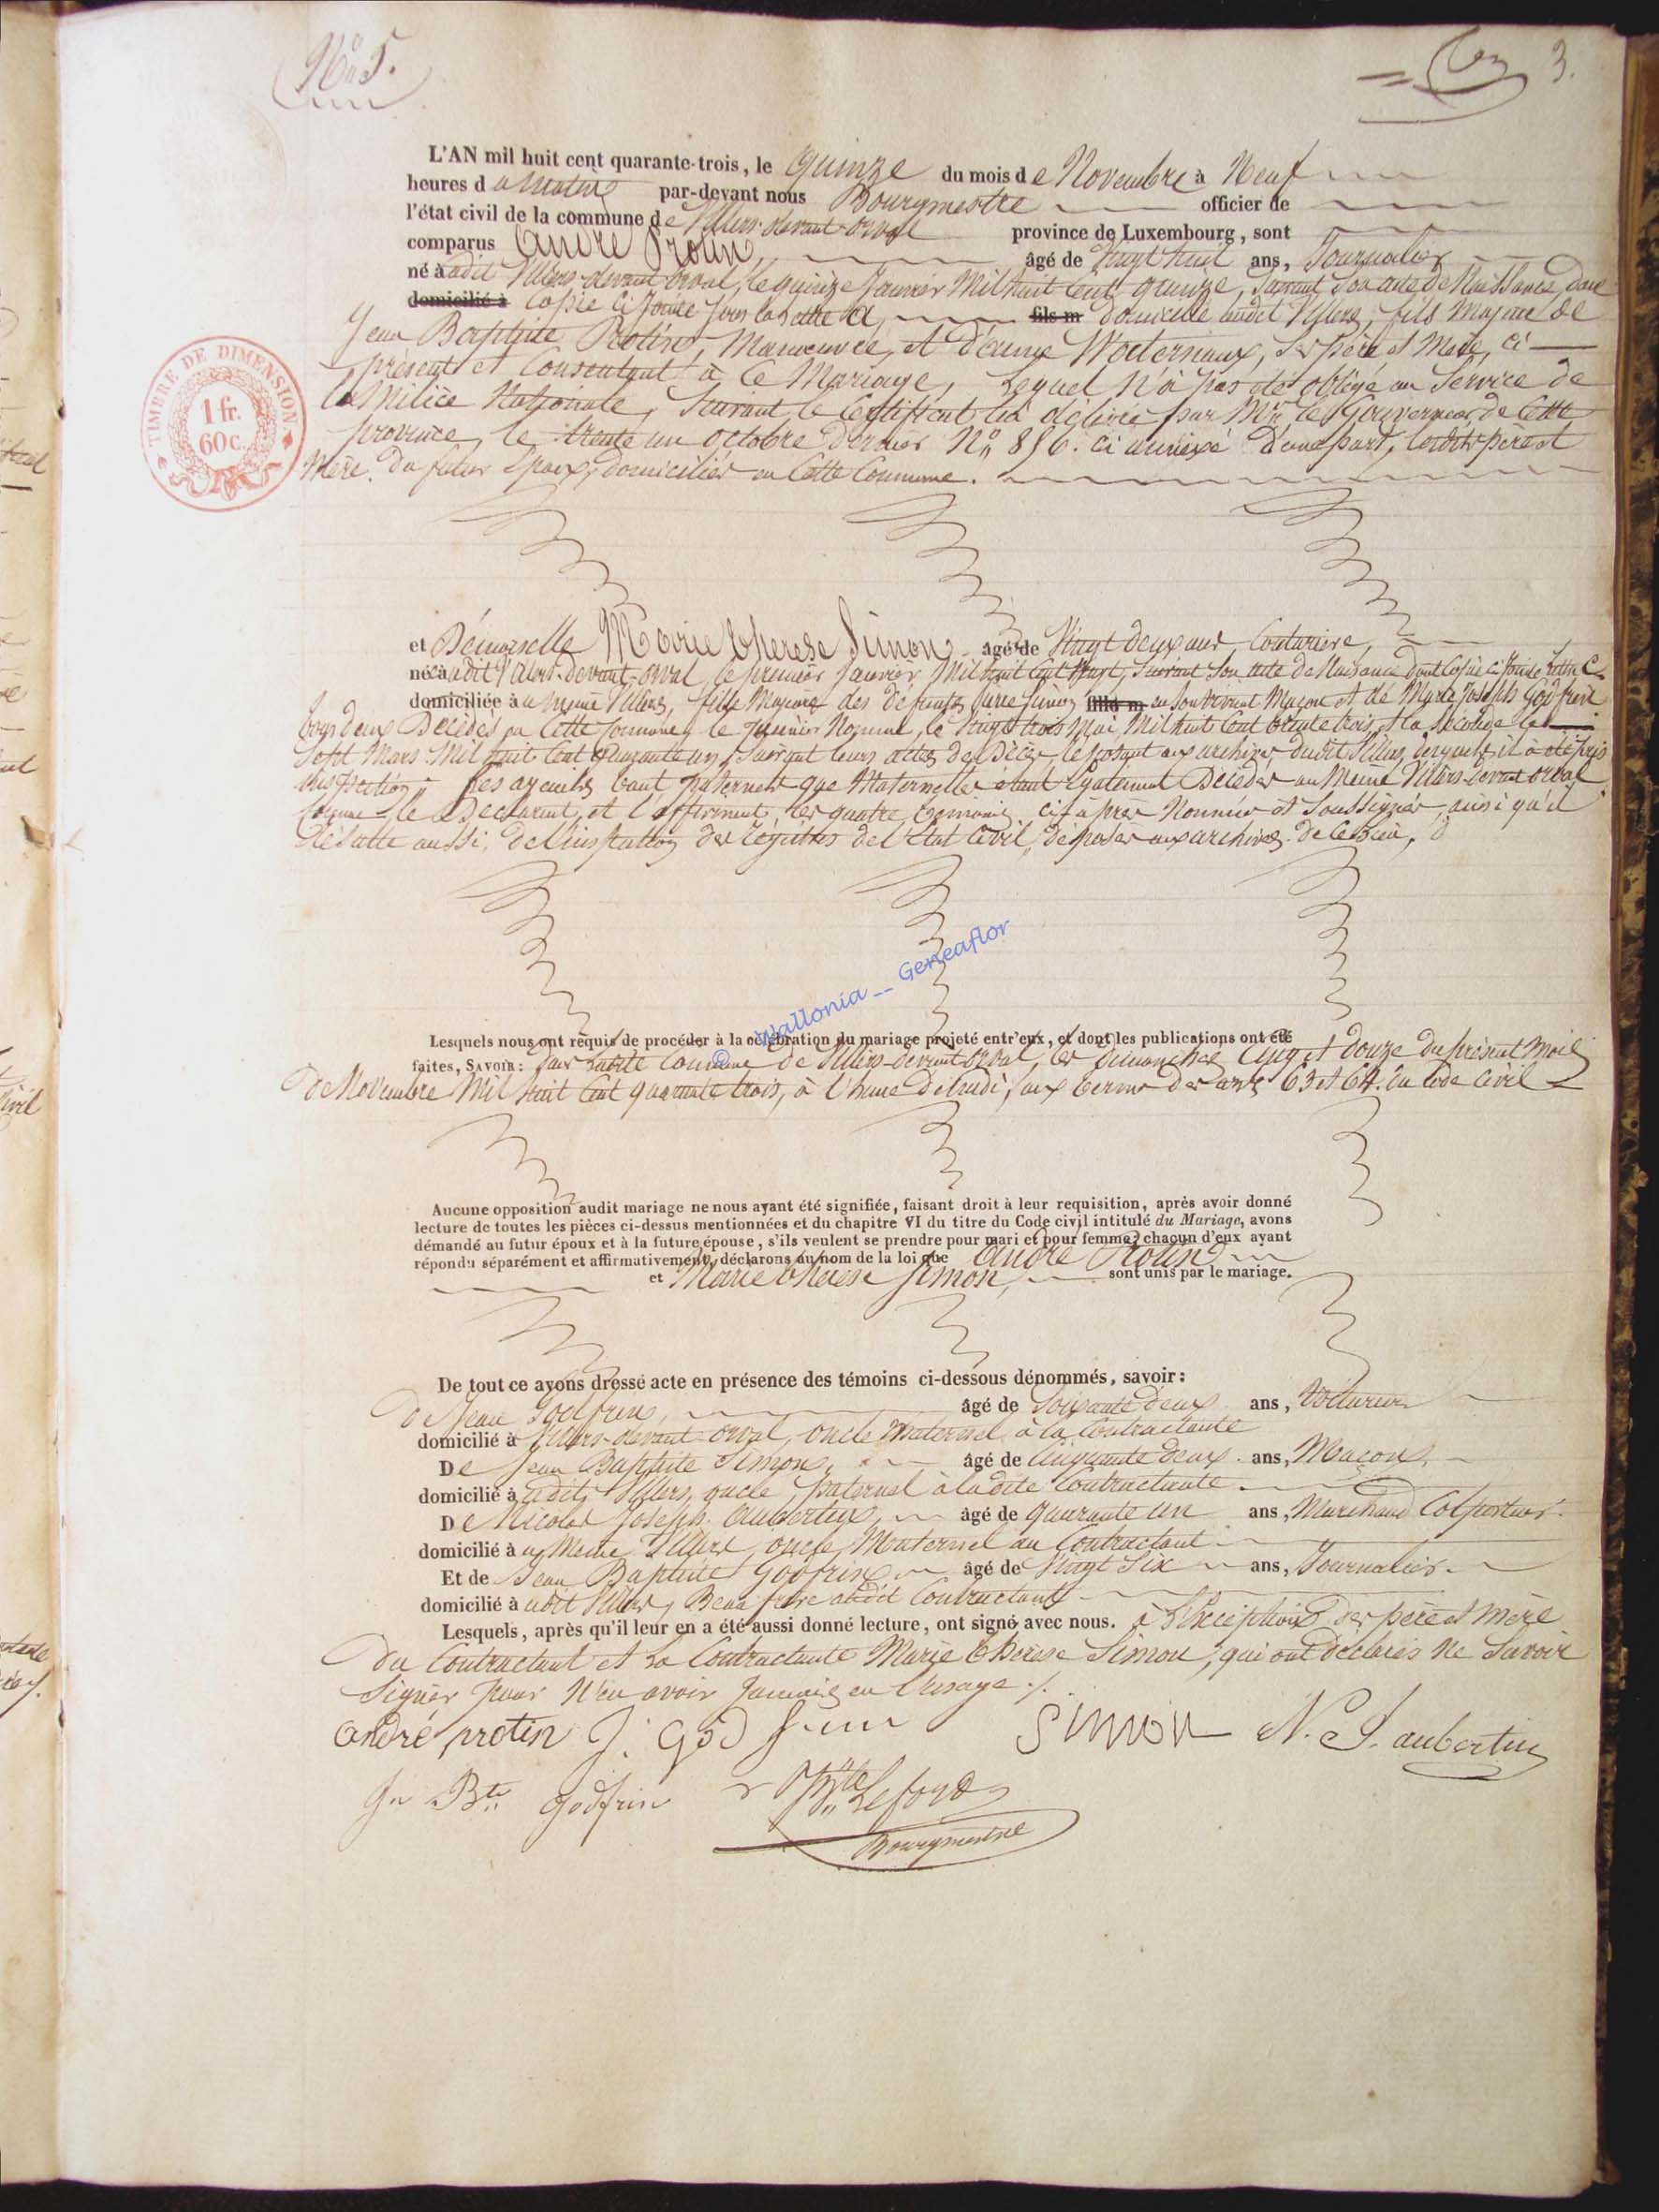 N° 5.
3.
L'AN mil huit cent quarante-trois, le quinze du mois de Novembre à Neuf
heures du matin par-devant nous Bourgmestre officier de
l'état civil de la commune de Villers-devant-orval province de Luxembourg, sont
comparus André Protin, âgé de Vingt huit ans, Journalier
né à udit Villers-devant orval, le quinze Janvier Mil huit Cent quinze, suivant son acte de Naissance, dont
domicilié à Copie ci jointe sous la lettre A, fils m domicilié audit Villers, fils Majeur de
Jean Baptiste Protin, Manoeuvre, et d' ses père et Mère, ci
présents et Consentant à ce Mariage, Lequel n'a pas été obligé au Service de
la Milice Nationale, Suivant le Certificat lui délivré par Mr. le Gouverneur de Cette
province, le trente un octobre dernier N° 856. ci annexé d'une part, lesdits père et
Mère du futur Epoux, domiciliés en Cette Commune.
et Démoiselle Marie Therese Simon âgé de Vingt deux ans Couturière,
né à udit Villers-devant-orval, le premier Janvier Mil huit Cent Vingt, suivant Son acte de Naissance dont Copie ci Jointe Lettre C.
domiciliée à u même Villers, fille Majeure des défunts Pierre Simon fille m en son vivant Maçon et de Marie Joseph Godfrin
tous deux Décédés en Cette Commune, le premier Nommé, le Vingt trois Mai Mil huit Cent trente trois, et la seconde le
Sept Mars Mil huit Cent Quarante un, Suivant leurs actes de Décès, reposant aux archives dudit Villers, desquels il a été pris
inspection, Les ayeuls tant paternels que Maternelles étant également Décédés au Même Villers-devant orval
Comme le Déclarent, et l'afferment, les quatre temoins ci-après Nommés et Soussignés, ainsi qu'il
Résulte aussi de l'inspection des registres de l'état Civil, déposés aux archives de Ce lieu,
© Wallonia -- Geneaflor
Lesquels nous ont requis de procéder à la célébration du mariage projeté entr'eux, et dont les publications ont été
faites, SAVOIR: par ladite Commune de Villers-devant-orval, les Dimanches Cinq et douze du présent Mois
de Novembre Mil huit Cent quarante trois, à l'heure de midi, aux termes des arts 63 et 64 du Code Civil
Aucune opposition audit mariage ne nous ayant été signifiée, faisant droit à leur requisition, après avoir donné
lecture de toutes les pièces ci-dessus mentionnées et du chapitre VI du titre du Code civil intitulé du Mariage, avons
démandé au futur époux et à la future épouse, s'ils veulent se prendre pour mari et pour femme; chacun d'eux ayant
répondu séparément et affirmativement, déclarons au nom de la loi que André Protin
et Marie Therese Simon, sont unis par le mariage.
De tout ce ayons dressé acte en présence des témoins ci-dessous dénommés, savoir:
De Jean Godfrin, âgé de Soixante deux ans, Voiturier
domicilié à Villers-devant orval, oncle Maternel à la Contractante
De Jean Baptiste Simon, âgé de Cinquante deux ans, Maçon,
domicilié à udit Villers, oncle paternel à ladite Contractante.
De Nicolas Joseph Aubertin, âgé de quarante un ans, Marchand Colporteur
domicilié à u Même Villers, oncle Maternel au Contractant
Et de Jean Baptiste Godfrin âgé de Vingt Six ans, Journalier
domicilié à udit Villers, Beau frère audit Contractant
Lesquels, après qu'il leur en a été aussi donné lecture, ont signé avec nous. à L'Exception des père et mère
du Contractant et la Contractante Marie Therese Simon, qui ont déclarés Ne Savoir
Signer pour N'en avoir Jamais eu l'usage ./.
André protin J. God frin Simon N. J. aubertin
Jn Bte godfrin
Bourgmestre
TIMBRE DE DIMENSION
1 fr.
60 c.